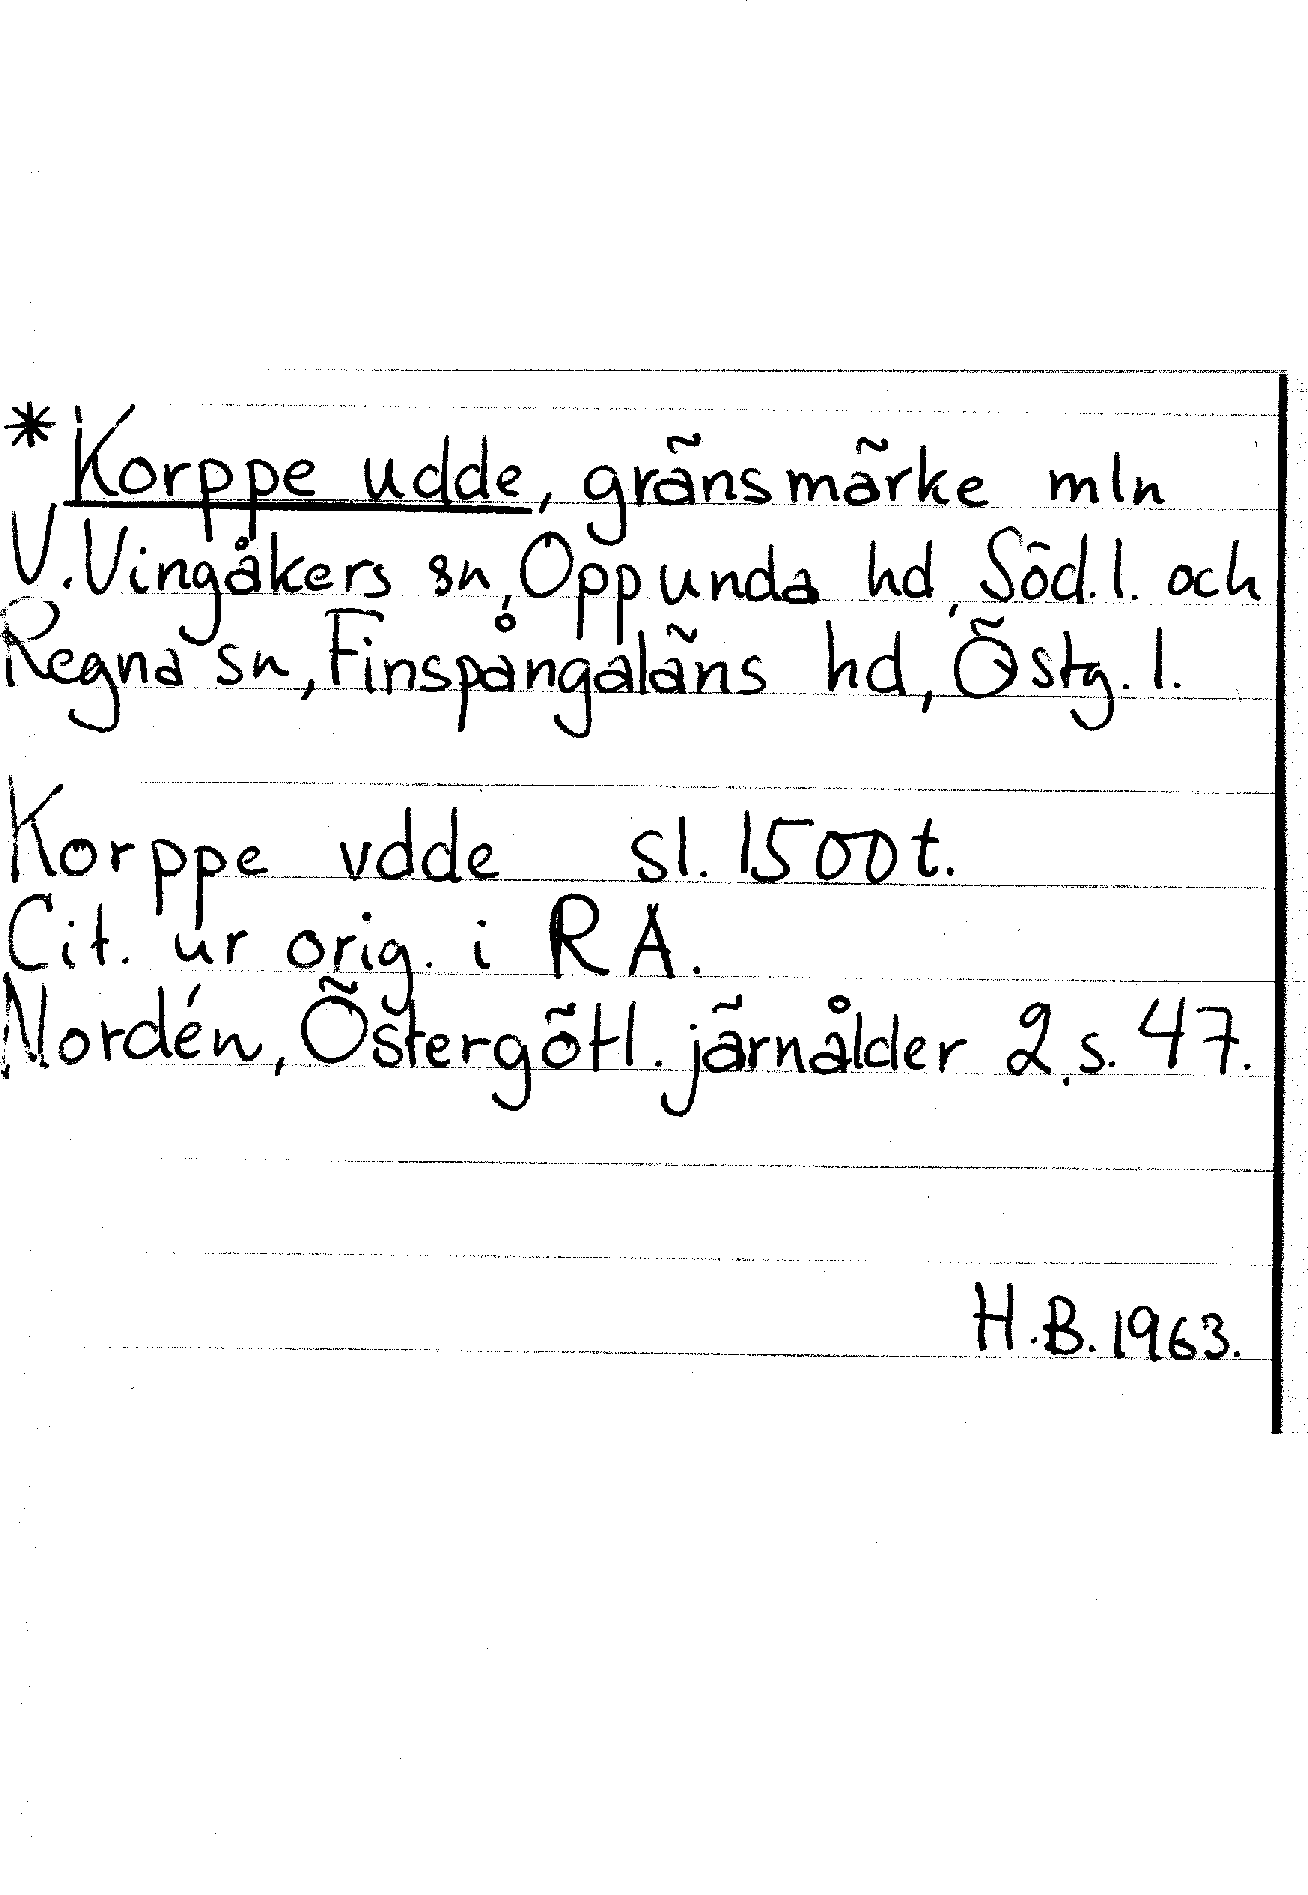 *Korppe udde, gränsmärke mln
V. Vingåkers sn, Oppunda hd, Söd. l. och
Regna sn, Finspångaläns hd, Östg. l.
Korppe vdde sl. 1500 t.
Cit. ur orig. i RA.
Nordén, Östergötl. järnålder 2, s. 47.
H.B. 1963.